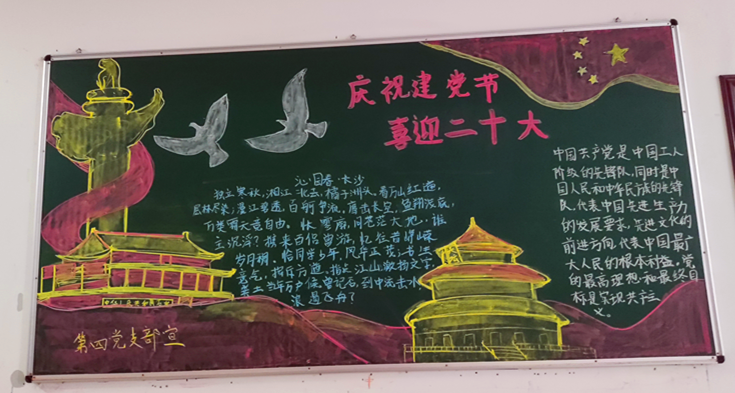 庆祝建党节
喜迎二十大
沁园春·长沙
独立寒秋,湘江北去,橘子洲头,看万山红遍,
层林尽染;漫江碧透,百舸争流,鹰击长空,鱼翔浅底,
万类霜天竞自由。怅寥廓,问苍茫大地,谁
主沉浮?携来百侣曾游,忆往昔峥嵘
岁月稠。恰同学少年,风华正茂;书生
意气,挥斥方遒。指点江山,激扬文字,
粪土当年万户侯。曾记否,到中流击水,
浪遏飞舟?
中国共产党是中国工人
阶级的先锋队,同时是中
国人民和中华民族的先锋
队,代表中国先进生产力
的发展要求,先进文化的
前进方向,代表中国最广
大人民的根本利益。党
的最高理想和最终目
标是实现共产主
义。
第四党支部宣